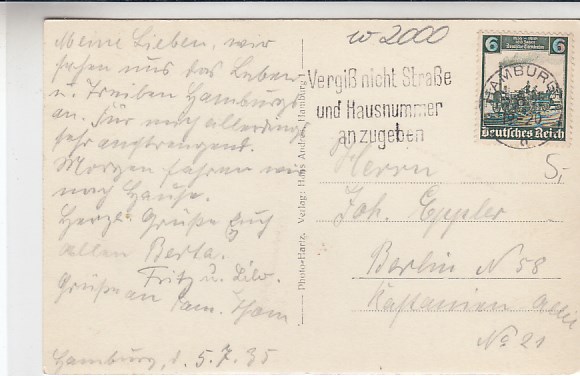 Meine Lieben, wir
sehen uns das Leben
u. Treiben Hamburgs
an. Für mich allerdings
sehr anstrengend.
Morgen fahren wir
nach Hause.
Herzl. Grüße Euch
allen Berta.
Fritz u. Lilo.
Grüße an Fam. Thom
Hamburg, d. 5.7.35
Photo-Hartz. Verlag: Hans Andres, Hamburg 1
W 2000
Vergiß nicht Straße
und Hausnummer
anzugeben
6 6
Deutsches Reich
HAMBURG
Herrn
Joh. Eppler
Berlin N 58
Kastanien Allee
No 21
S,